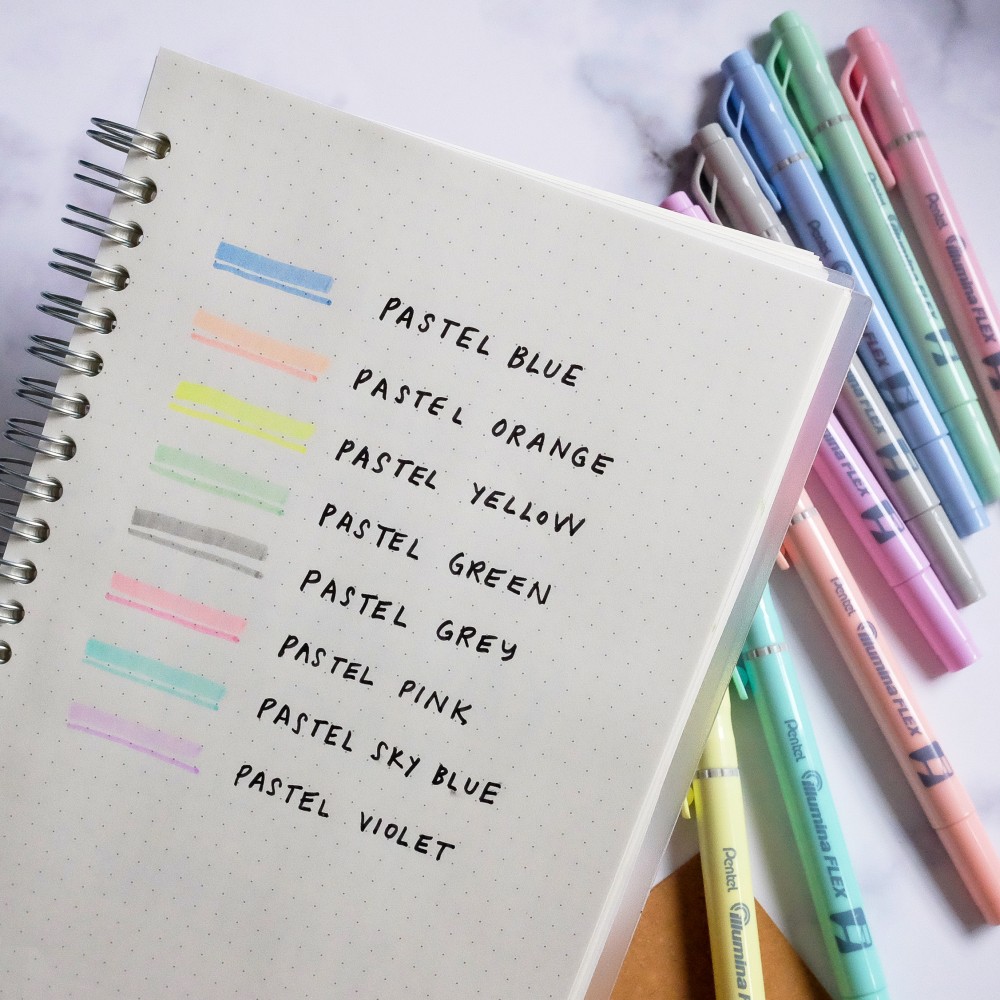 PASTEL BLUE
PASTEL ORANGE
PASTEL YELLOW
PASTEL GREEN
PASTEL GREY
PASTEL PINK
PASTEL SKY BLUE
PASTEL VIOLET
Pentel illumina FLEX
Pentel
Pentel FLEX
FLEX
umina FLEX
Pentel illumina FLEX
Pentel illumina FLEX
Pentel illumina F